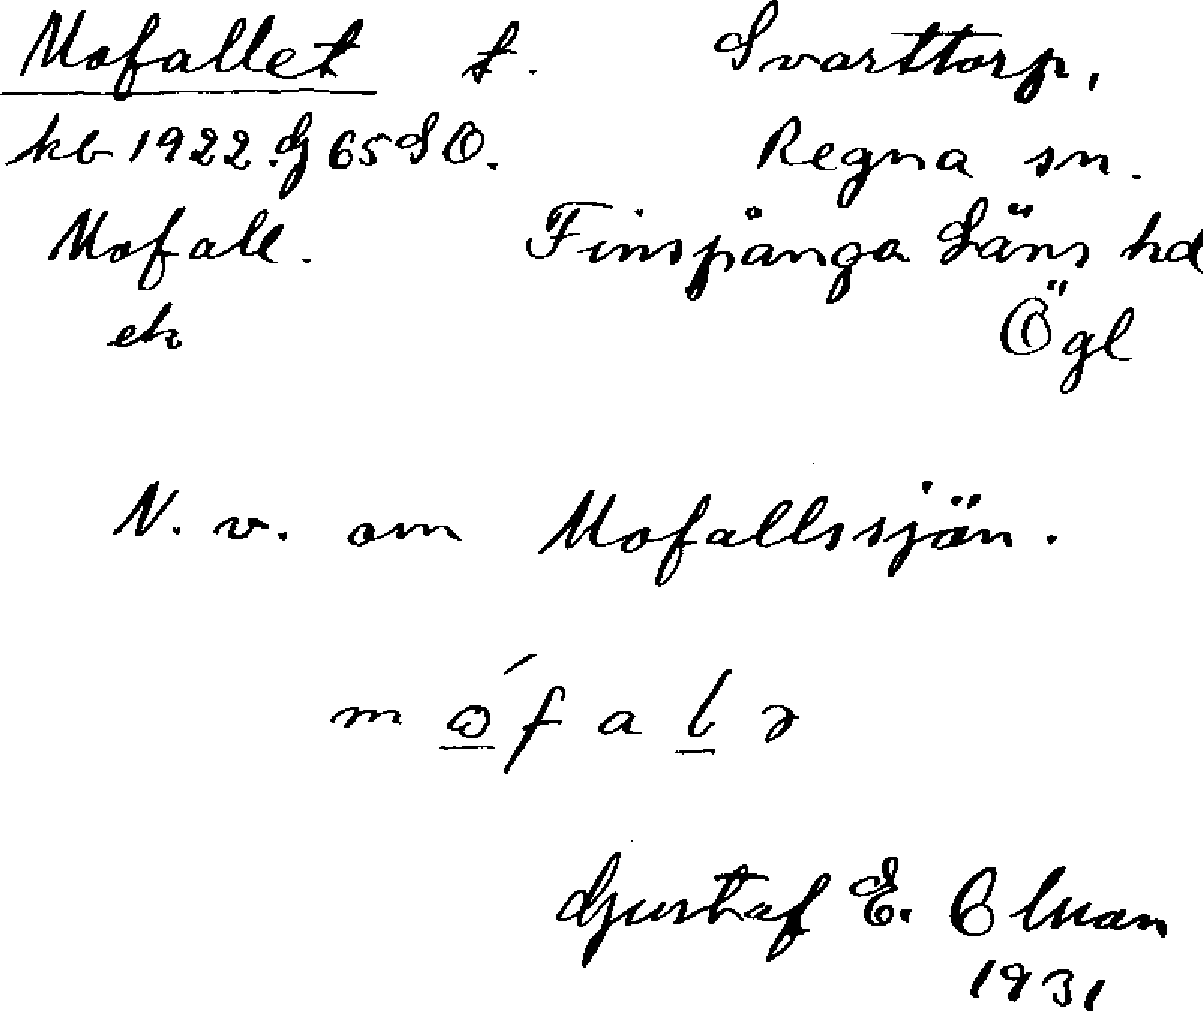 Mofallet t. Svarttorp,
kb 1922. G 65 S O. Regna sn.
Mofall. Finspånga Läns hd
ek Ögl
N. v. om Mofallssjön.
Gustaf E.
1931